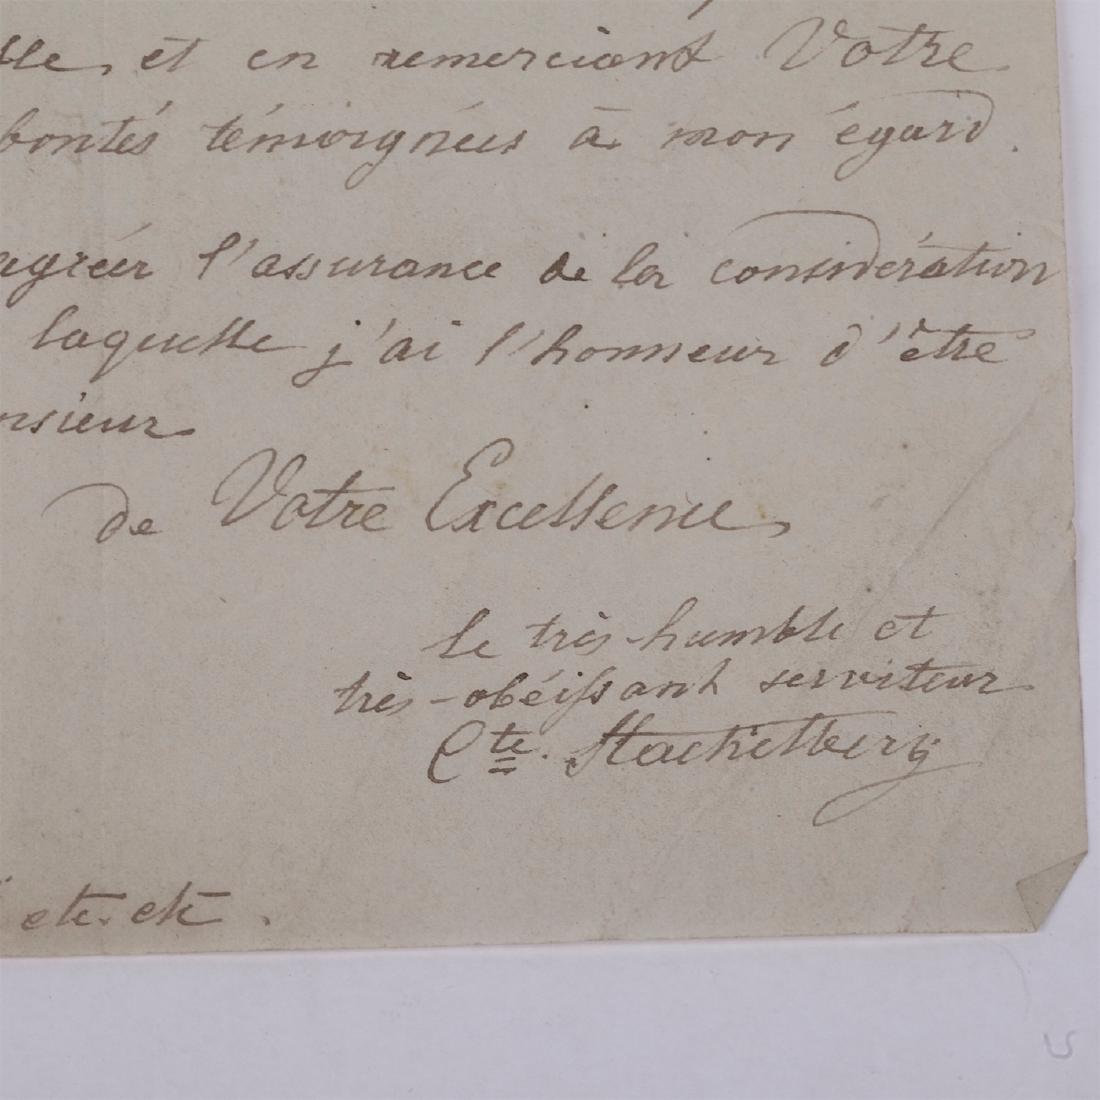 lle, et en remerciant Votre
bontés témoignées à mon égard.
agréer l'assurance de la considération
laquelle j'ai l'honneur d'être
nsieur
de Votre Excellence,
le très humble et
très-obéissant serviteur
Cte. Stackelberg
etc. etc.